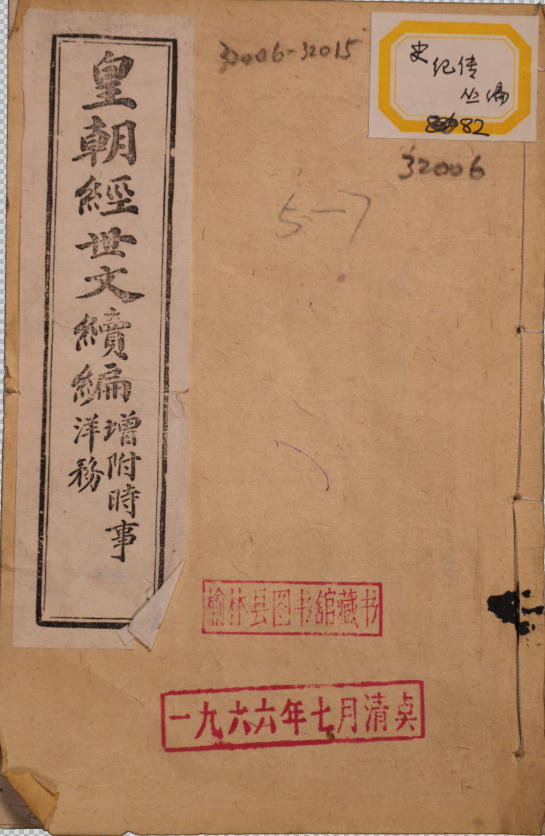 皇朝經世文續編
增附時事
洋務
32006-32015
史
纪传
丛编
82
32006
5-7
榆林县图书馆藏书
一九六六年七月清点